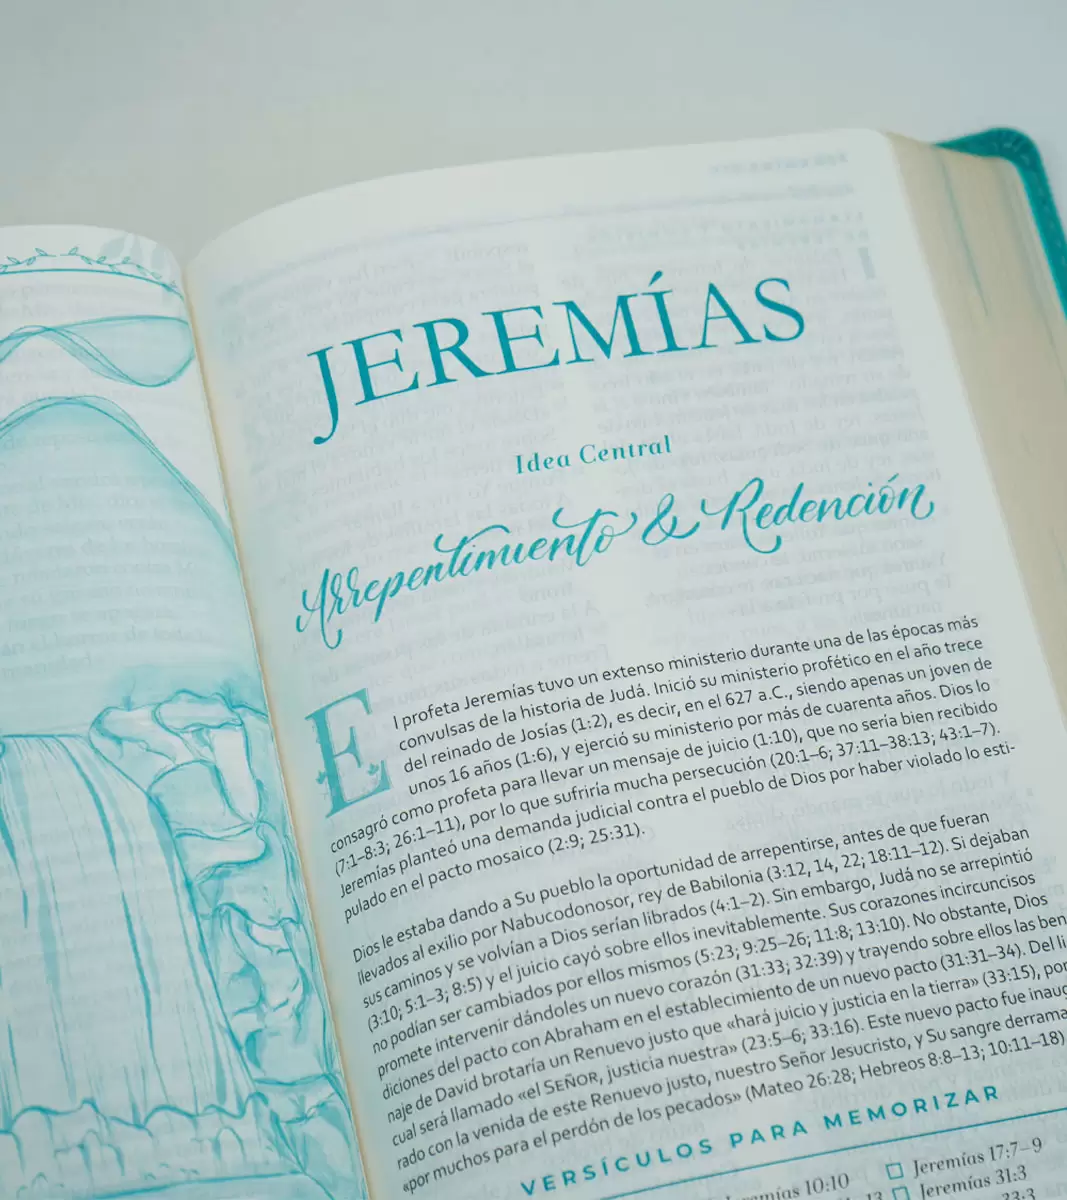 JEREMÍAS
Idea Central
Arrepentimiento & Redención
El profeta Jeremías tuvo un extenso ministerio durante una de las épocas más
convulsas de la historia de Judá. Inició su ministerio profético en el año trece
del reinado de Josías (1:2), es decir, en el 627 a.C., siendo apenas un joven de
unos 16 años (1:6), y ejerció su ministerio por más de cuarenta años. Dios lo
consagró como profeta para llevar un mensaje de juicio (1:10), que no sería bien recibido
(7:1–8:3; 26:1–11), por lo que sufriría mucha persecución (20:1–6; 37:11–38:13; 43:1–7).
Jeremías planteó una demanda judicial contra el pueblo de Dios por haber violado lo esti-
pulado en el pacto mosaico (2:9; 25:31).
Dios le estaba dando a Su pueblo la oportunidad de arrepentirse, antes de que fueran
llevados al exilio por Nabucodonosor, rey de Babilonia (3:12, 14, 22; 18:11–12). Si dejaban
sus caminos y se volvían a Dios serían librados (4:1–2). Sin embargo, Judá no se arrepintió
(3:10; 5:1–3; 8:5) y el juicio cayó sobre ellos inevitablemente. Sus corazones incircuncisos
no podían ser cambiados por ellos mismos (5:23; 9:25–26; 11:8; 13:10). No obstante, Dios
promete intervenir dándoles un nuevo corazón (31:33; 32:39) y trayendo sobre ellos las ben
diciones del pacto con Abraham en el establecimiento de un nuevo pacto (31:31–34). Del li
naje de David brotaría un Renuevo justo que «hará juicio y justicia en la tierra» (33:15), por
cual será llamado «el SEÑOR, justicia nuestra» (23:5–6; 33:16). Este nuevo pacto fue inaug
rado con la venida de este Renuevo justo, nuestro Señor Jesucristo, y Su sangre derrama
«por muchos para el perdón de los pecados» (Mateo 26:28; Hebreos 8:8–13; 10:11–18)
VERSÍCULOS PARA MEMORIZAR
10:10
Jeremías 17:7–9
Jeremías 31:3